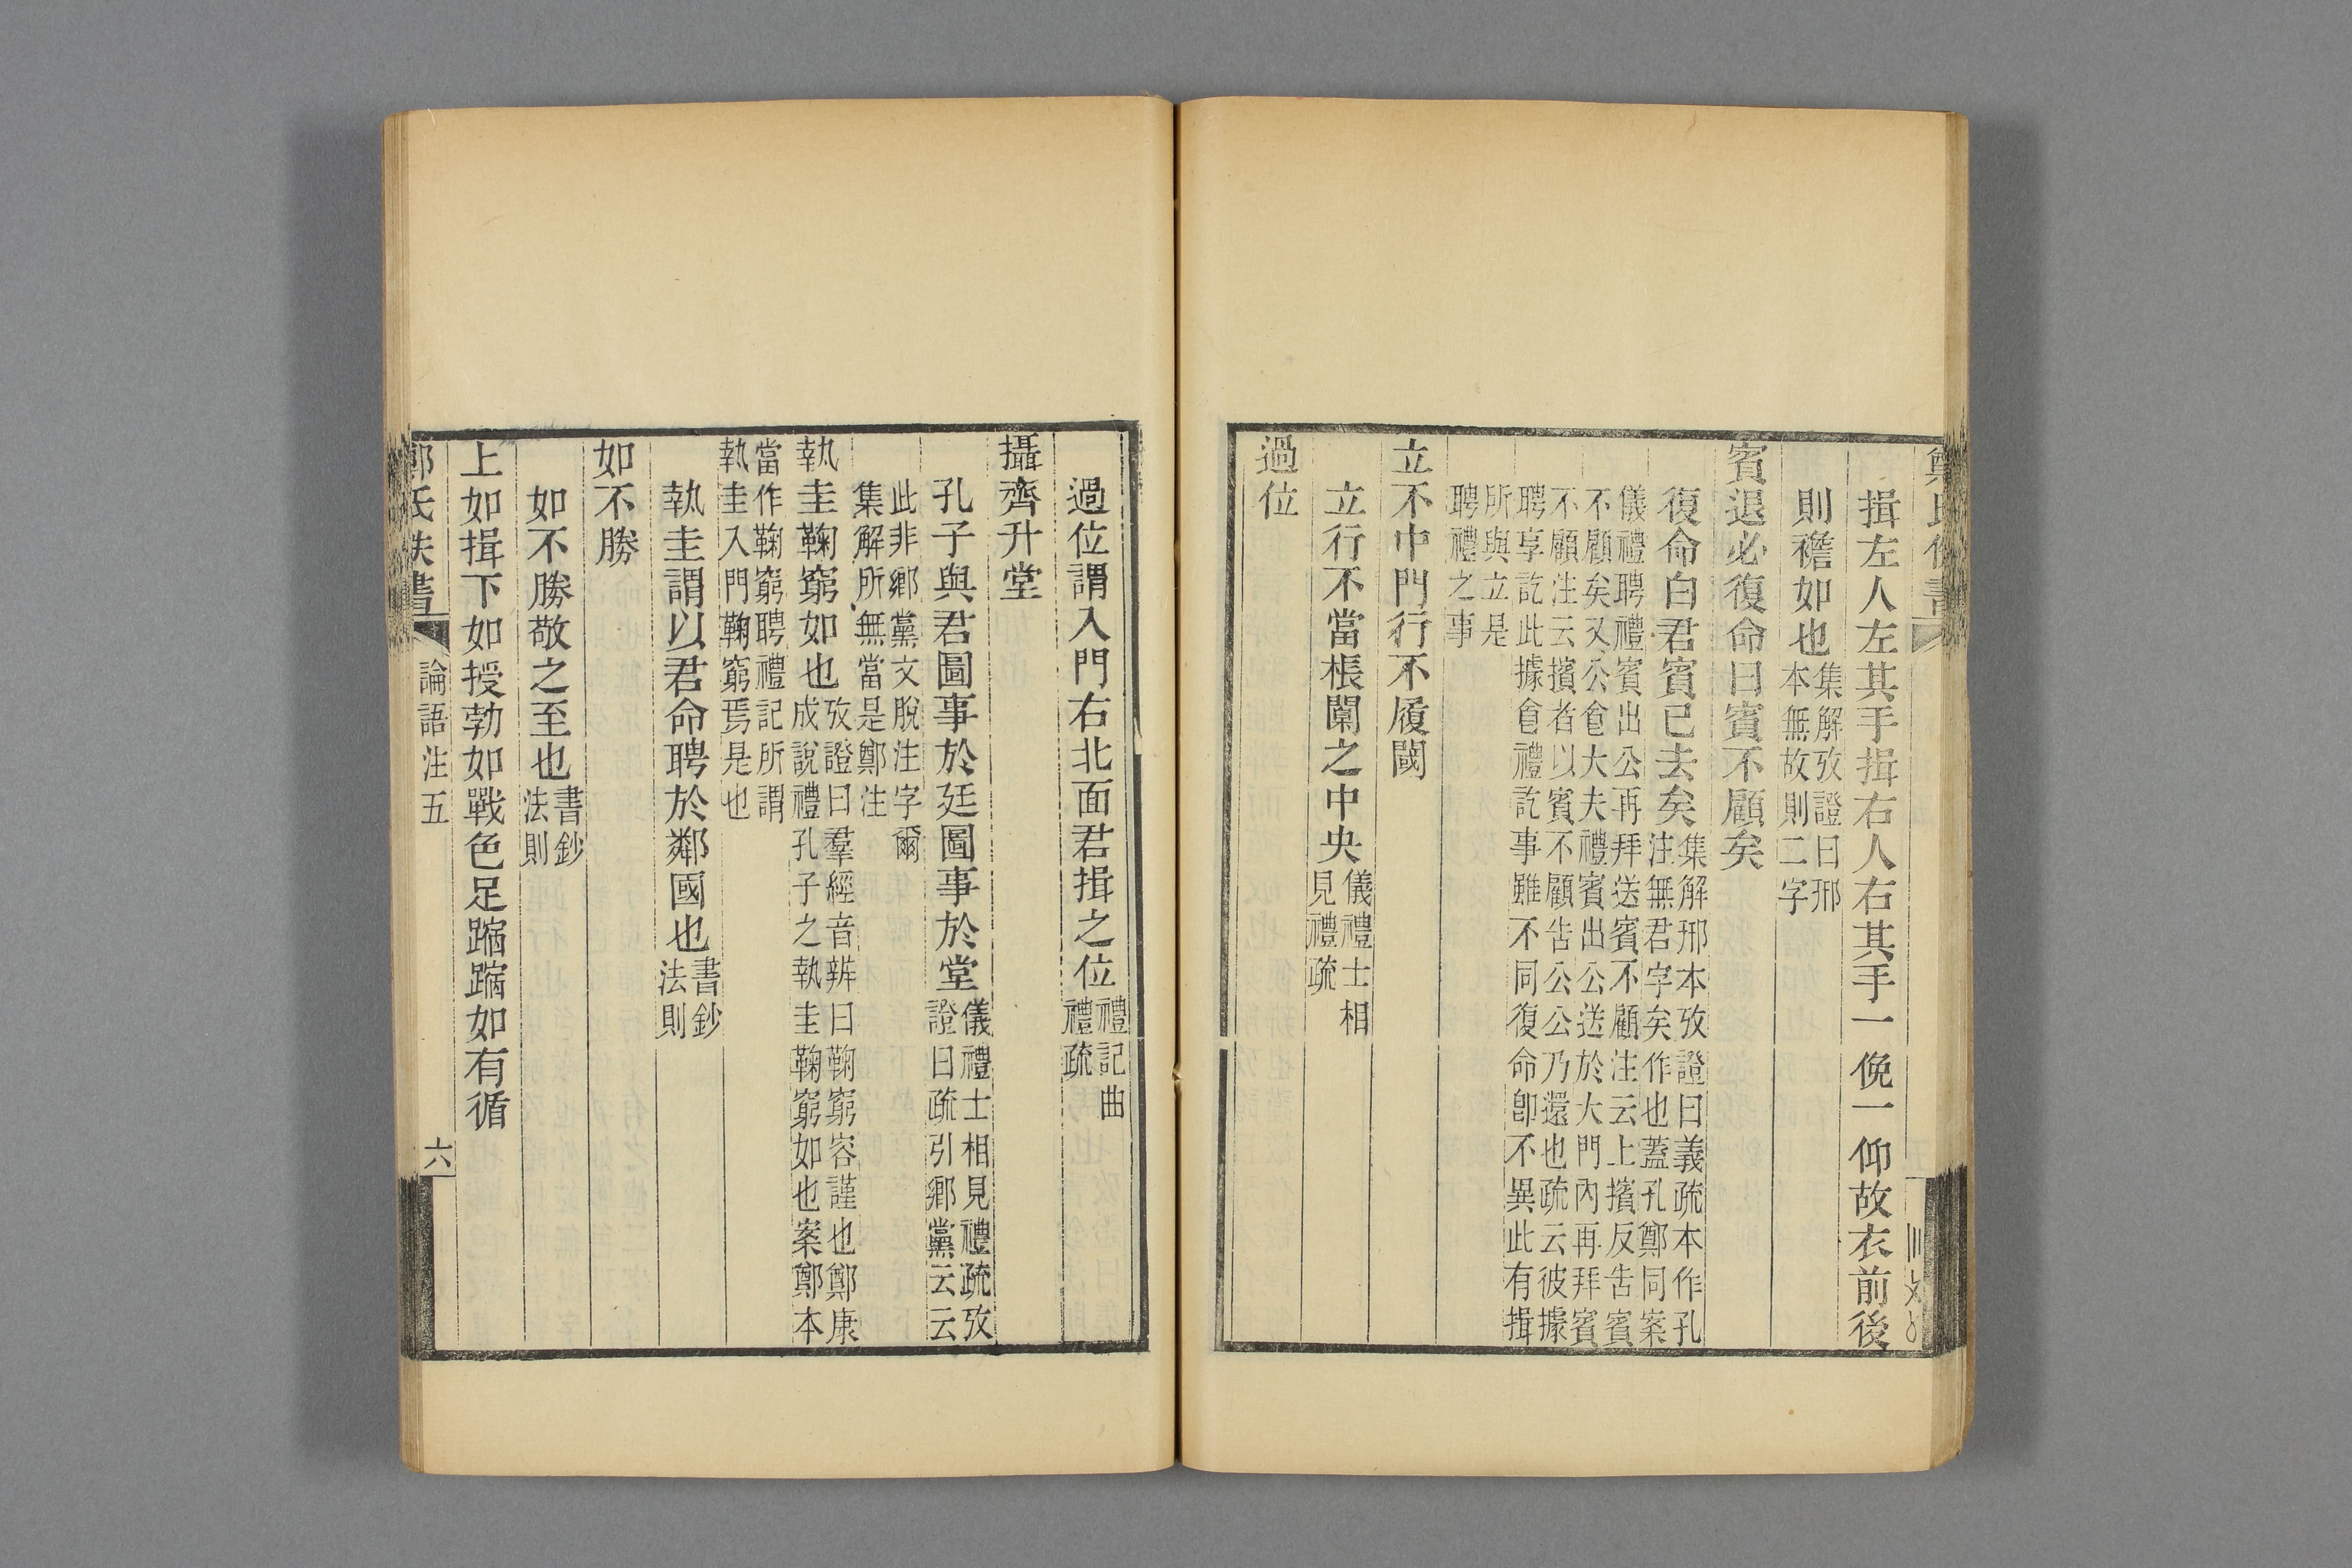 揖左人左其手揖右人右其手一俛一仰故衣前後
則襜如也集解攷證曰邢
本無故則二字
賓退必復命曰賓不顧矣
復命白君賓已去矣集解邢本攷證曰義疏本作孔
注無君字矣作也蓋孔鄭同案
儀禮聘禮賓出公再拜送賓不顧注云上擯反告賓
不顧矣又公食大夫禮賓出公送於大門內再拜賓
不顧注云擯者以賓不顧告公公乃還也疏云彼據
聘享訖此據食禮訖事雖不同復命卽不異此有揖
所與立是
聘禮之事
立不中門行不履閾
立行不當棖闑之中央儀禮士相
見禮疏
過位
過位謂入門右北面君揖之位禮記曲
禮疏
攝齊升堂
孔子與君圖事於廷圖事於堂儀禮士相見禮疏攷
證曰疏引鄉黨云云
此非鄉黨文脫注字爾
集解所無當是鄭注
執圭鞠窮如也攷證曰羣經音辨曰鞠窮容謹也鄭康
成說禮孔子之執圭鞠窮如也案鄭本
當作鞠窮聘禮記所謂
執圭入門鞠窮焉是也
執圭謂以君命聘於鄰國也書鈔
法則
如不勝
如不勝敬之至也書鈔
法則
上如揖下如授勃如戰色足蹜蹜如有循
氏佚書
論語注五
六